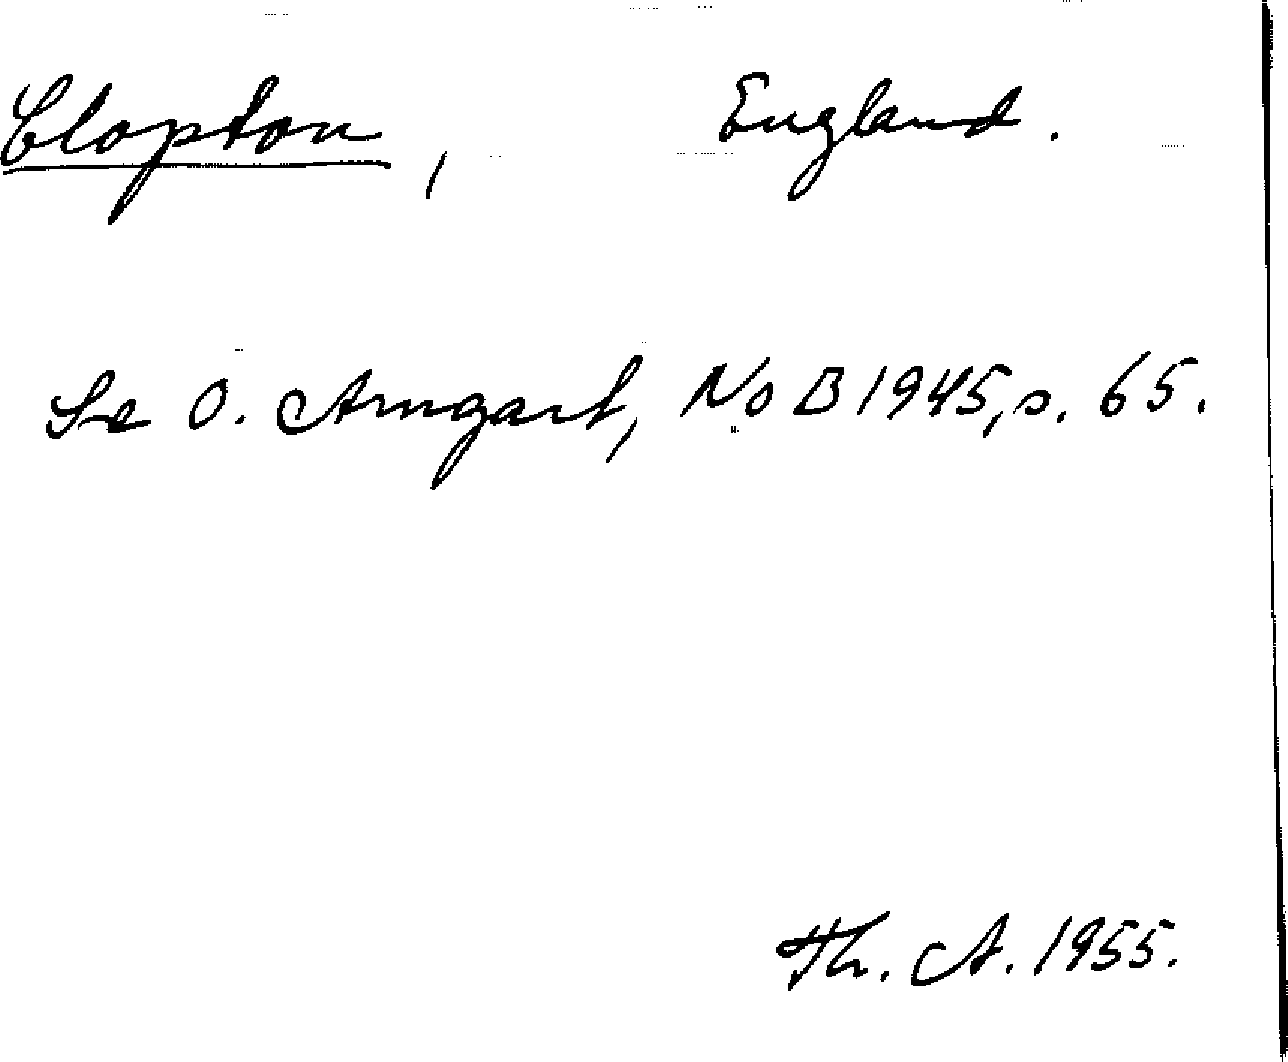 Clopton, England.
Se O. Arngart, NoB 1945, s. 65.
Th. A. 1955.